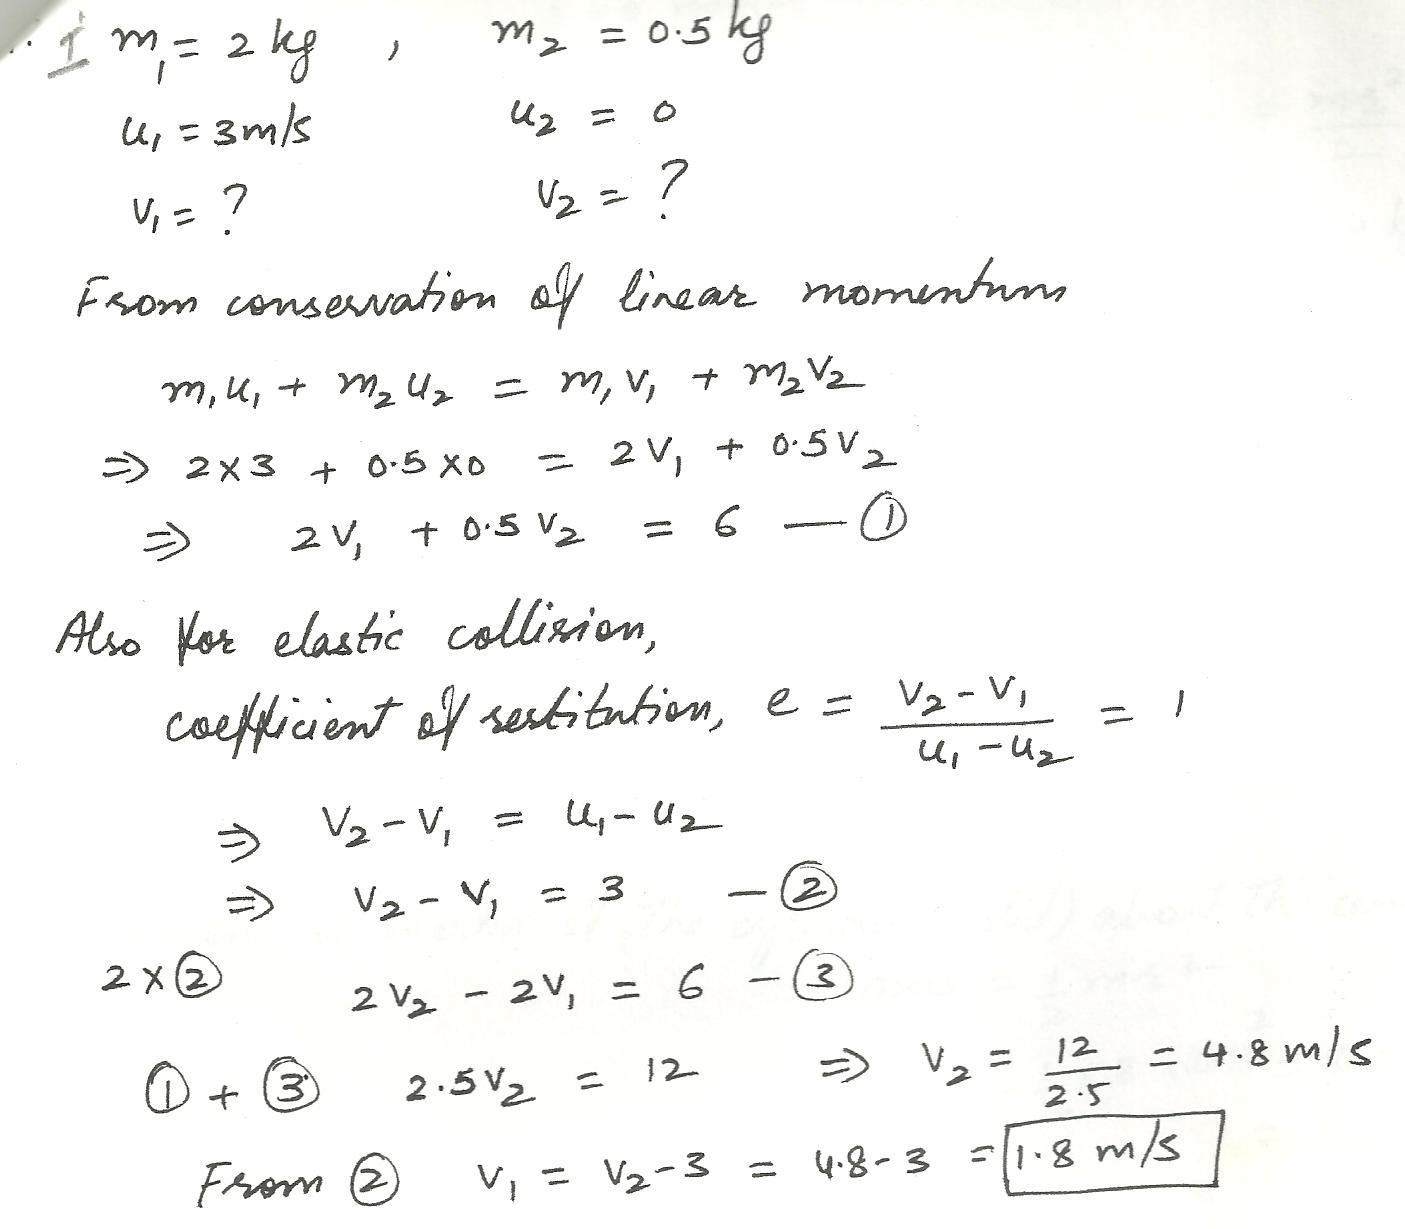 I m₁ = 2 kg , m₂ = 0.5 kg
u₁ = 3m/s u₂ = 0
v₁ = ? v₂ = ?
From conservation of linear momentum
m₁u₁ + m₂u₂ = m₁v₁ + m₂v₂
⇒ 2×3 + 0.5×0 = 2v₁ + 0.5v₂
⇒ 2v₁ + 0.5v₂ = 6 — ①
Also for elastic collision,
coefficient of restitution, e = (v₂-v₁)/(u₁-u₂) = 1
⇒ v₂-v₁ = u₁-u₂
⇒ v₂-v₁ = 3 - ②
2×② 2v₂ - 2v₁ = 6 - ③
① + ③ 2.5v₂ = 12 ⇒ v₂ = 12/2.5 = 4.8 m/s
From ② v₁ = v₂-3 = 4.8-3 = 1.8 m/s